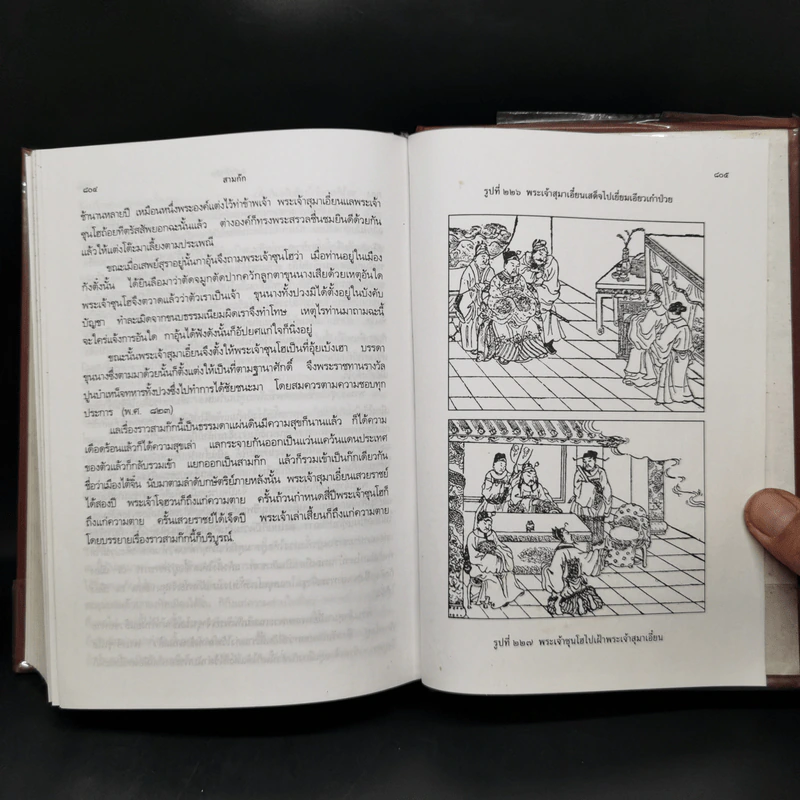 ๘๐๔
สามก๊ก
ช้านานหลายปี เหมือนหนึ่งพระองค์แต่งไว้ท่าข้าพเจ้า พระเจ้าสุมาเอี๋ยนแลพระเจ้า
ซุนโฮถ้อยทีตรัสสัพยอกฉะนั้นแล้ว ต่างองค์ก็ทรงพระสรวลชื่นชมยินดีด้วยกัน
แล้วให้แต่งโต๊ะมาเลี้ยงตามประเพณี
ขณะเมื่อเสพย์สุราอยู่นั้นกาอุ้นจึงถามพระเจ้าซุนโฮว่า เมื่อท่านอยู่ในเมือง
กังตั๋งนั้น ได้ยินลือมาว่าตัดจมูกตัดปากควักลูกตาขุนนางเสียด้วยเหตุอันใด
พระเจ้าซุนโฮจึงตวาดแล้วว่าตัวเราเป็นเจ้า ขุนนางทั้งปวงมิได้ตั้งอยู่ในบังคับ
บัญชา ทำละเมิดจากขนบธรรมเนียมผิดเราจึงทำโทษ เหตุไรท่านมาถามฉะนี้
จะใคร่แจ้งการอันใด กาอุ้นได้ฟังดังนั้นก็อัปยศแก่ใจก็นิ่งอยู่
ขณะนั้นพระเจ้าสุมาเอี๋ยนจึงตั้งให้พระเจ้าซุนโฮเป็นที่อุ้ยเบ้งเฮา บรรดา
ขุนนางซึ่งตามมาด้วยนั้นก็ตั้งแต่งให้เป็นที่ตามฐานาศักดิ์ จึงพระราชทานรางวัล
ปูนบำเหน็จทหารทั้งปวงซึ่งไปทำการได้ชัยชนะมา โดยสมควรตามความชอบทุก
ประการ (พ.ศ. ๘๒๓)
แลเรื่องราวสามก๊กนี้เป็นธรรมดาแผ่นดินมีความสุขก็นานแล้ว ก็ได้ความ
เดือดร้อนแล้วก็ได้ความสุขเล่า แลกระจายกันออกเป็นแว่นแคว้นแดนประเทศ
ของตัวแล้วก็กลับรวมเข้า แยกออกเป็นสามก๊ก แล้วก็รวมเข้าเป็นก๊กเดียวกัน
ชื่อว่าเมืองไต้จิ้น นับมาตามลำดับกษัตริย์ภายหลังนั้น พระเจ้าสุมาเอี๋ยนเสวยราชย์
ได้สองปี พระเจ้าโจฮวนก็ถึงแก่ความตาย ครั้นถ้วนกำหนดสี่ปีพระเจ้าซุนโฮก็
ถึงแก่ความตาย ครั้นเสวยราชย์ได้เจ็ดปี พระเจ้าเล่าเสี้ยนก็ถึงแก่ความตาย
โดยบรรยายเรื่องราวสามก๊กนี้ก็บริบูรณ์.
๘๐๕
รูปที่ ๒๒๖ พระเจ้าสุมาเอี๋ยนเสด็จไปเยี่ยมเอียวเก๋าป่วย
รูปที่ ๒๒๗ พระเจ้าซุนโฮไปเฝ้าพระเจ้าสุมาเอี๋ยน